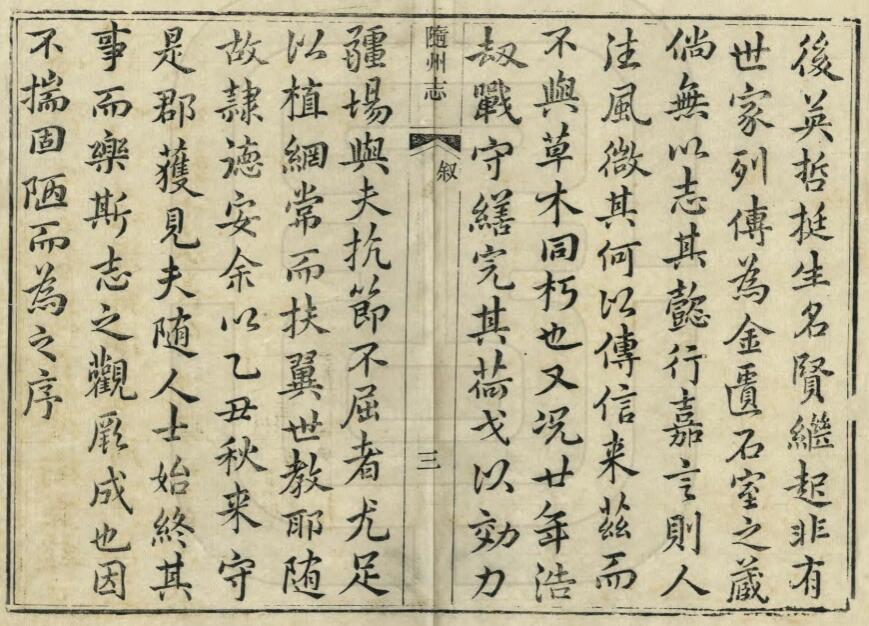 後英哲挺生名賢繼起非有
世家列傳為金匱石室之藏
倘無以志其懿行嘉言則人
徃風微其何以傳信来茲而
不與草木同朽也又况廿年浩
刼戰守繕完其荷戈以効力
隨州志
叙
三
疆場與夫抗節不屈者尤足
以植綱常而扶翼世教耶随
故隷德安余以乙丑秋来守
是郡獲見夫随人士始終其
事而樂斯志之觀厥成也因
不揣固陋而為之序